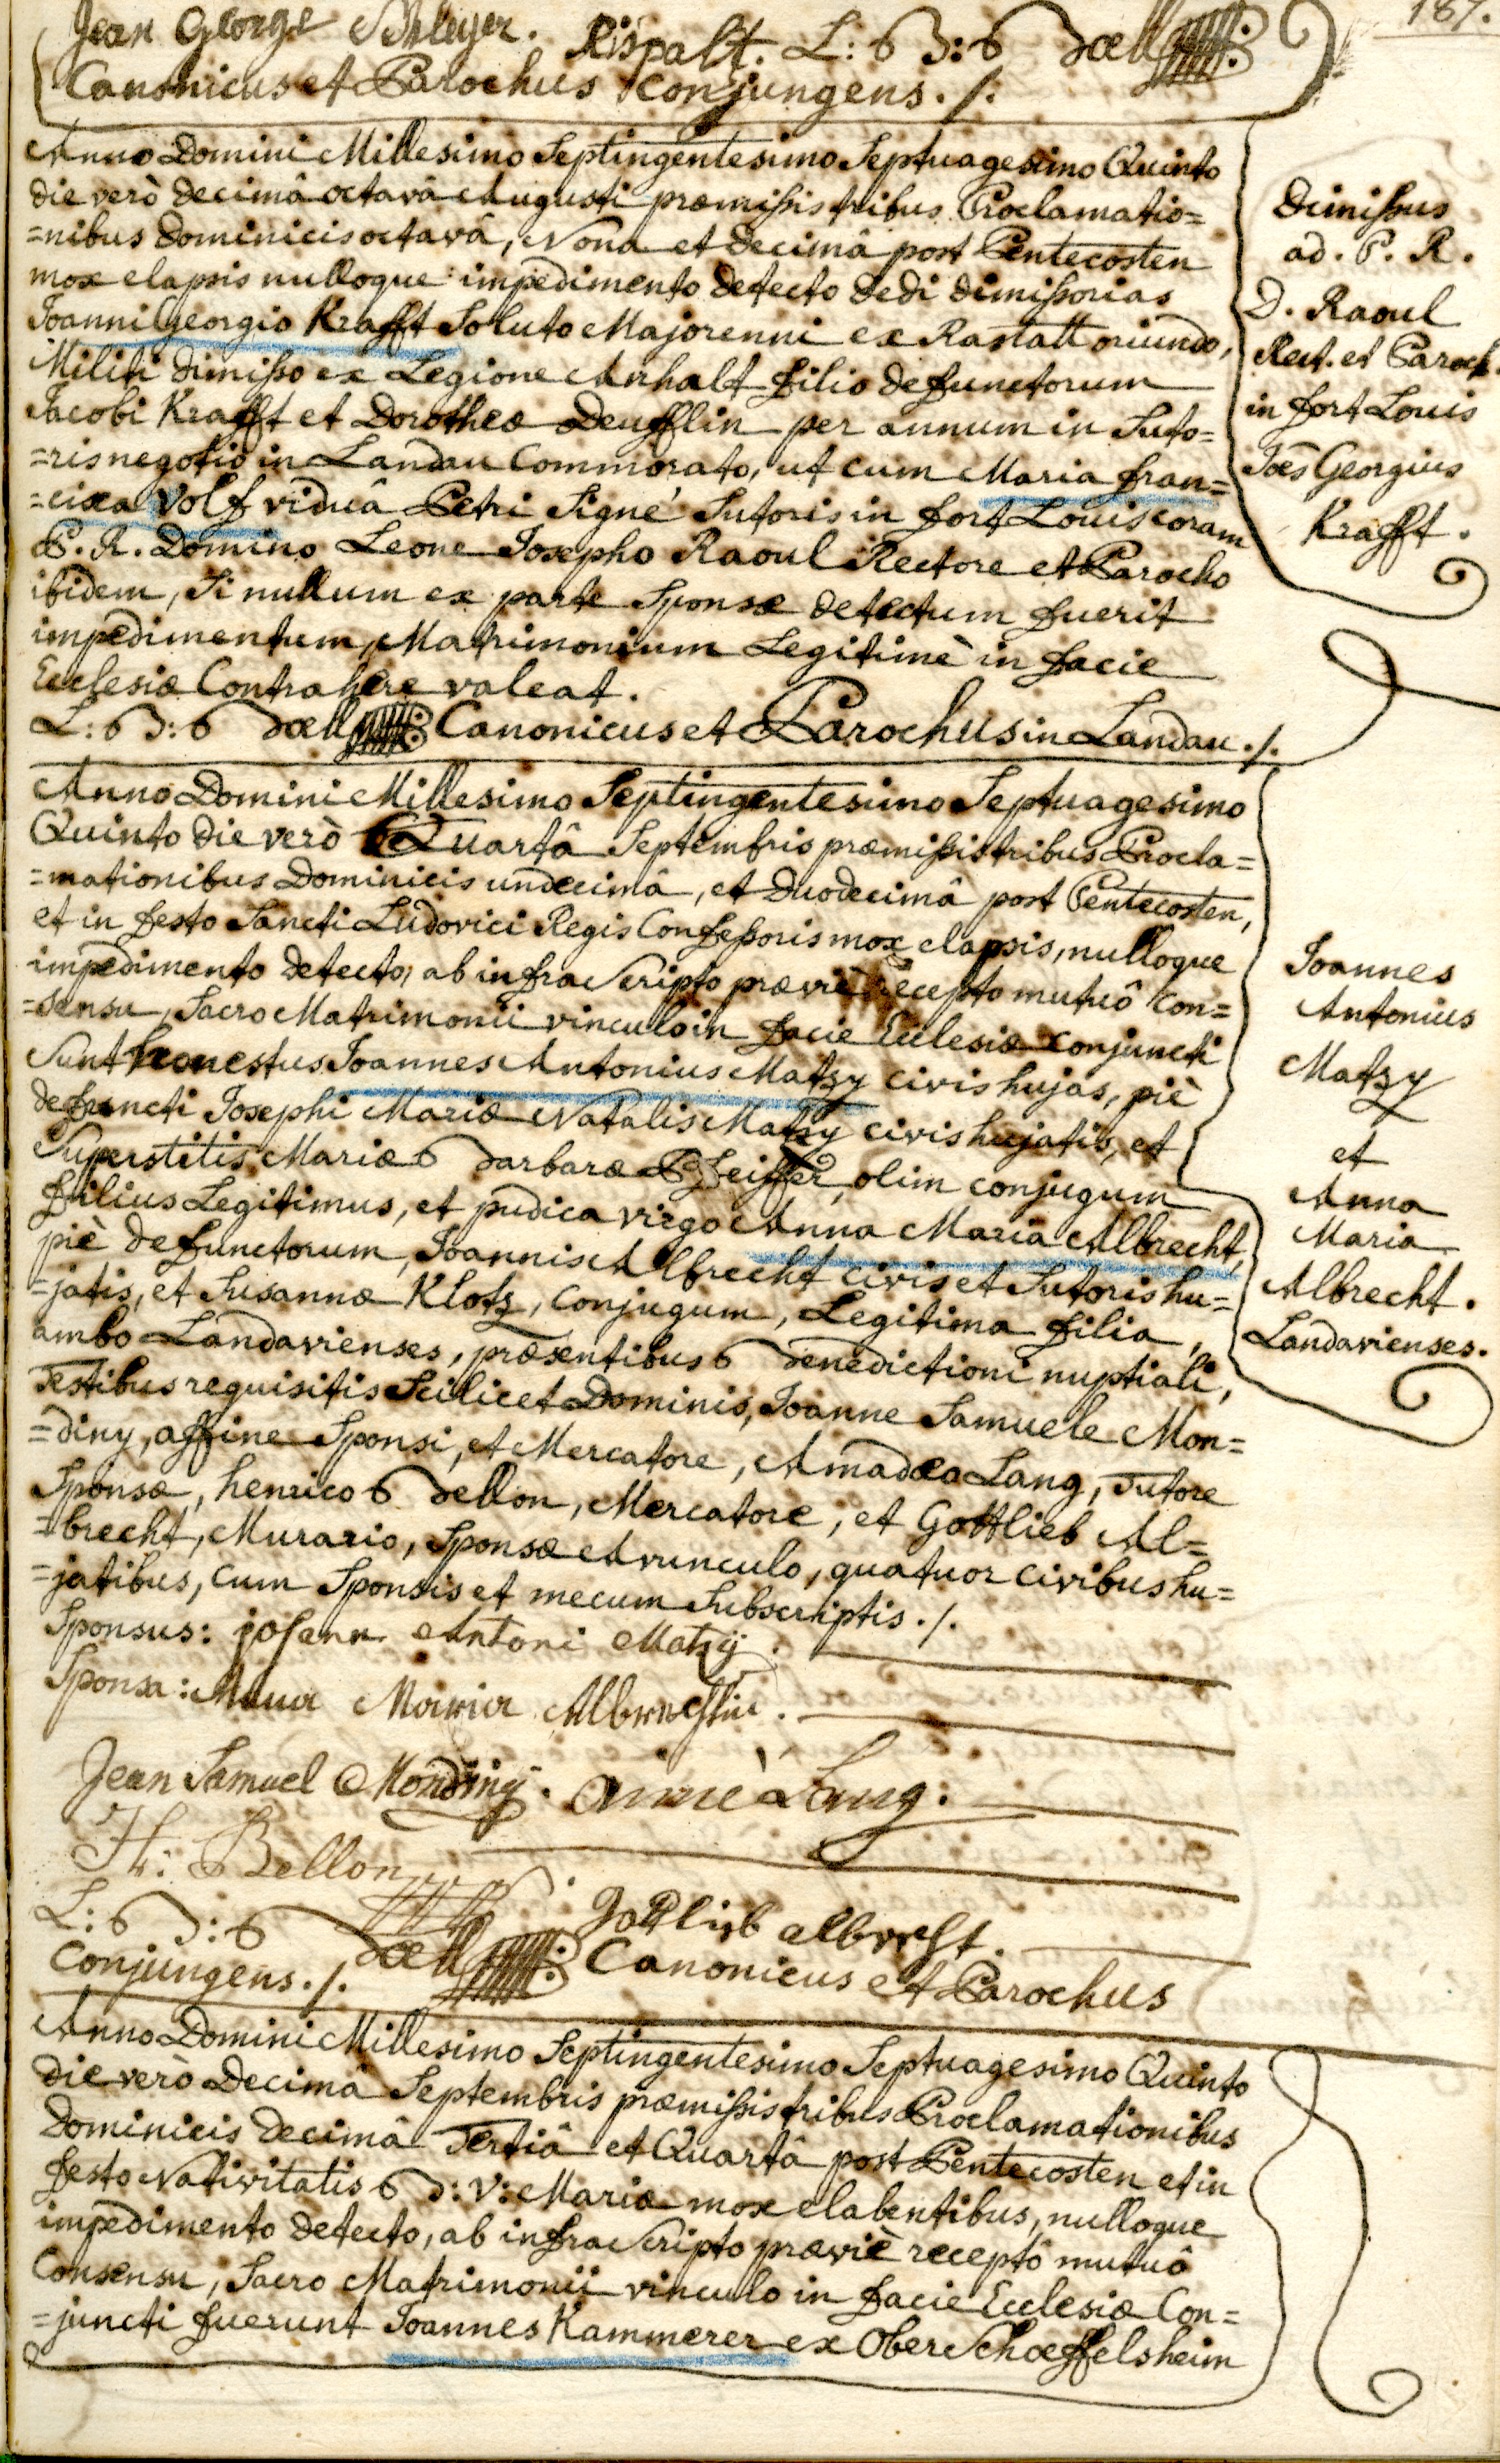 187.
Jean George
Rispalt. L: B: Bœll
Canonicus et Parochus Conjungens ./.
Anno Domini Millesimo Septingentesimo Septuagesimo Quinto
die verò decimâ octavâ Augusti præmissis tribus Proclamatio=
=nibus Dominicis octavâ, Nona et decimâ post Pentecosten
mox elapsis nulloque impedimento detecto dedi dimissorias
Joanni Georgio Krafft Soluto Majorenni ex Rastatt oriundo,
Militi dimisso ex Legione Anhalt filio defunctorum
Jacobi Krafft et Dorotheæ Deufflin per annum in Suto=
=ris negotio in Landau Commorato, ut cum Maria Fran=
=cisca Volf viduâ Petri Signé Sutoris in Fort Louis coram
P. R. Domino Leone Josepho Raoul Rectore et Parocho
ibidem, Si nullum ex parte Sponsæ detectum fuerit
impedimentum, Matrimonium Legitimè in facie
Ecclesiæ Contrahere valeat.
L: B: Bœll Canonicus et Parochus in Landau ./.
Dimissus
ad. P. R.
D. Raoul
Rect. et Paroch.
in Fort Louis
Joēs Georgius
Krafft.
Anno Domini Millesimo Septingentesimo Septuagesimo
Quinto die verò Quartâ Septembris præmissis tribus Procla=
=mationibus Dominicis undecimâ, et Duodecimâ post Pentecosten,
et in festo Sancti Ludovici Regis Confessoris mox elapsis, nulloque
impedimento detecto, ab infra Scripto præviè recepto mutuô Con=
=sensu, Sacro Matrimonii vinculo in facie Ecclesiæ conjuncti
Sunt honestus Joannes Antonius Matzy civis hujas, piè
defuncti Josephi Mariæ Natalis Matzy civis hujatis, et
Superstitis Mariæ Barbaræ Pfeiffer, olim conjugum
filius Legitimus, et pudica virgo Anna Maria Albrecht,
piè defunctorum, Joannis Albrecht civis et Sutoris hu=
=jatis, et Susannæ Klotz, Conjugum, Legitima filia,
ambo Landavienses, præsentibus Benedictioni nuptiali,
Testibus requisitis Scilicet Dominis, Joanne Samuele Mon=
=diny, affine Sponsi, et Mercatore, Amadæo Lang, Tutore
Sponsæ, henrico Bellon, Mercatore, et Gottlieb Al=
=brecht, Murario, Sponsæ Avunculo, quatuor civibus hu=
=jatibus, cum Sponsis et mecum Subscriptis ./.
Joannes
Antonius
Matzy
et
Anna
Maria
Albrecht.
Landavienses.
Sponsus: johann Antoni Matzÿ.
Sponsa: Anna Maria Albrechtin.
Jean Samuel Mondinÿ. Lang.
H: Bellon
Gottlieb albrecht.
L: B: Bœll Canonicus et Parochus
Conjungens ./.
Anno Domini Millesimo Septingentesimo Septuagesimo Quinto
die verò Decimâ Septembris præmissis tribus Proclamationibus
Dominicis decimâ Tertiâ et Quartâ post Pentecosten et in
festo Nativitatis B: V: Mariæ mox elabentibus, nulloque
impedimento detecto, ab infra Scripto præviè receptô mutuô
Consensu, Sacro Matrimonii vinculo in facie Ecclesiæ Con=
=juncti fuerunt Joannes Kammerer ex Ober Schæffelsheim